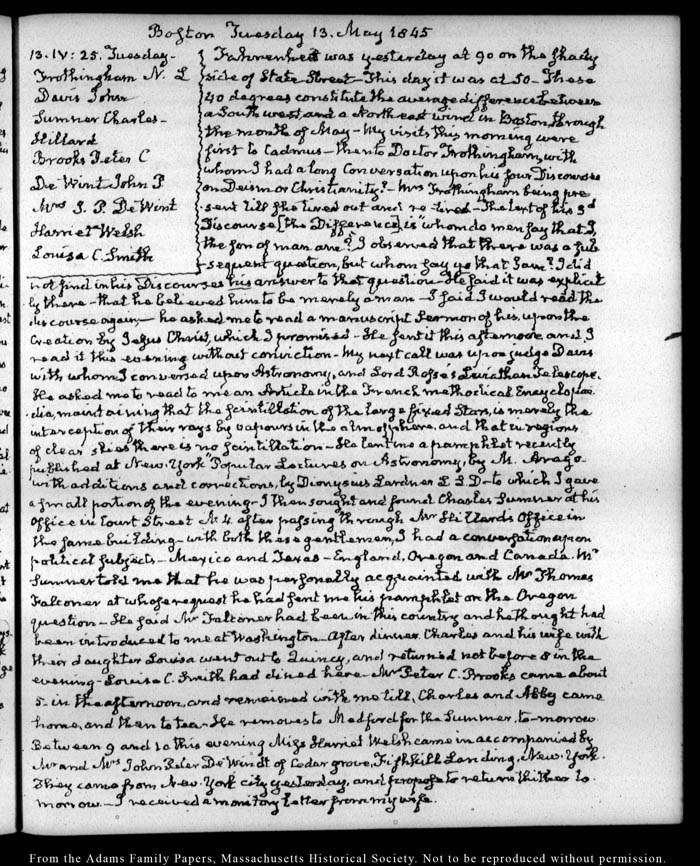 Boston Tuesday 13. May 1845
13. IV: 25. Tuesday-
Frothingham N. L
Davis John
Sumner Charles-
Hillard
Brooks Peter C
De Wint John P
Mrs J. P. De Wint
Harriet Welsh
Louisa C. Smith
Fahrenheit was yesterday at 90 on the shady
side of State Street- This day it was at 50- These
40 degrees constitute the average difference between
a South west, and a North east wind in Boston, through
the month of May- My visits this morning were
first to Cadmus- then to Doctor Frothingham, with
whom I had a long Conversation upon his four Discourses
on Deism or Christianity?- Mrs Frothingham being pre
sent till she tired out and re-tired- The text of his 3d
Discourse [the Difference] is "whom do men say that I,
the son of man am? I observed that there was a sub
sequent question, but whom say ye that I am? I did
not find in his Discourses his answer to that question- He said it was explicit
ly there- that he believed him to be merely a man- I said I would read the
discourse again- he asked me to read a manuscript Sermon of his, upon the
Creation by Jesus Christ, which I promised- He sent it this afternoon and I
read it this evening without conviction- My next call was upon judge Davis
with whom I conversed upon Astronomy, and Lord Rosse's Leviathan Telescope.
He asked me to read to me an Article in the French methodical Encyclopæ
dia, maintaining that the scintillation of the large fixed Stars, is merely the
interception of their rays by vapours in the atmosphere, and that in regions
of clear skies there is no scintillation- He lent me a pamphlet recently
published at New-York "Popular Lectures on Astronomy, by M. Arago
with additions and corrections, by Dionysius Lardner L L D- to which I gave
a small portion of the evening- I then sought and found Charles Sumner at his
Office in Court Street N. 4. after passing through Mr Hillard's Office in
the same building- with both these gentlemen, I had a conversation upon
political subjects- Mexico and Texas- England, Oregon and Canada. Mr
Sumner told me that he was personally acquainted with Mr Thomas
Falconer at whose request he had sent me his pamphlet on the Oregon
question- He said Mr Falconer had been in this country and he thought had
been introduced to me at Washington- After dinner Charles and his wife with
their daughter Louisa went out to Quincy, and returned not before 8 in the
evening- Louisa C. Smith had dined here- Mr Peter C. Brooks came about
5. in the afternoon, and remained with me till Charles and Abby came
home, and then to tea- He removes to Medford for the Summer, to-morrow
Between 9 and 10 this evening Miss Harriet Welsh came in accompanied by
Mr and Mrs John Peter De Windt of Cedar grove, Fishkill Landing, New-York.
They came from New-York city yesterday, and propose to return thither to-
morrow- I received a monitory letter from my wife.
From the Adams Family Papers, Massachusetts Historical Society. Not to be reproduced without permission.